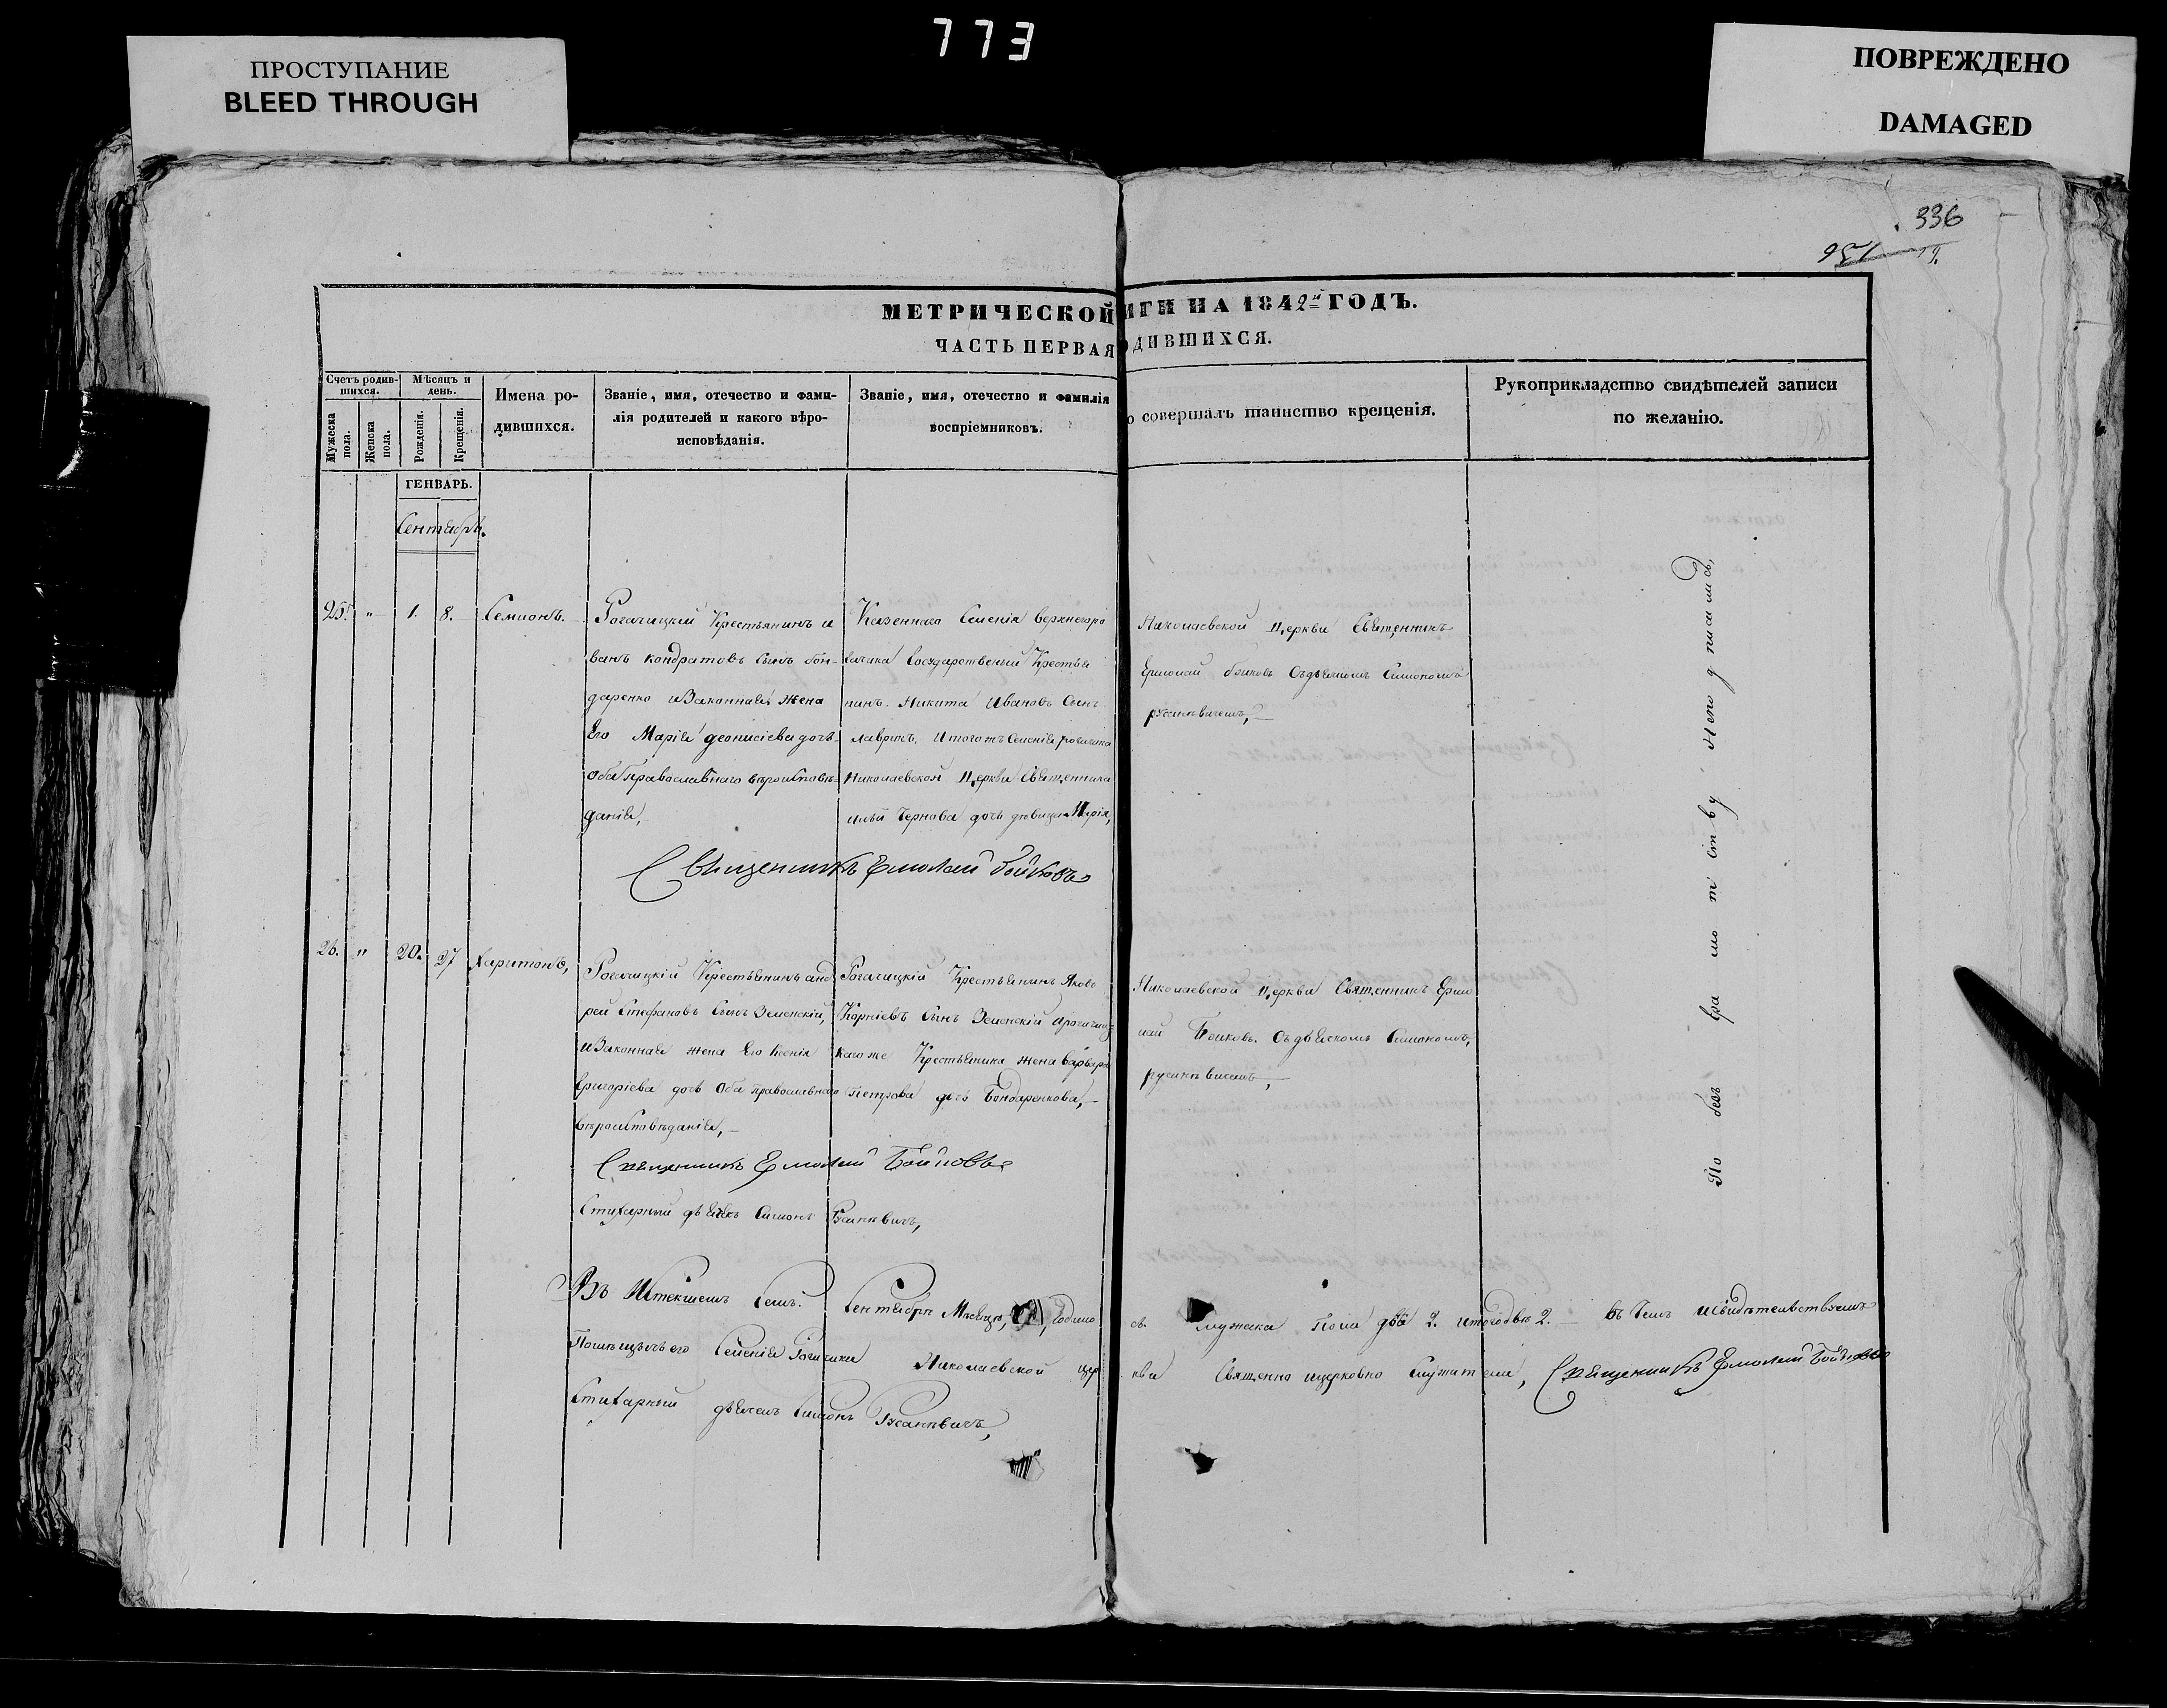 773
ПРОСТУПАНИЕ
BLEED THROUGH
ПОВРЕЖДЕНО
DAMAGED
336
МЕТРИЧЕСКОЙ ИГИ НА 1842й ГОДЪ.
ЧАСТЬ ПЕРВАЯ ОДИВШИХСЯ.
Счетъ родившихся.
Мужеска пола.
Женска пола.
Мѣсяцъ и день.
Рожденія.
Крещенія.
Имена родившихся.
Званіе, имя, отечество и фамилія родителей и какого вѣроисповѣданія.
Званіе, имя, отечество и фамилія воспріемниковъ.
о совершалъ таинство крещенія.
Рукоприкладство свидѣтелей записи по желанію.
ГЕНВАРЬ.
Сентябрь.
25. " 1. 8. Семионъ.
Рогачицкій Крестьянинъ и
ванъ кондратовъ сынъ бон-
даренко и Законная жена
Его Марія деонисіева дочь
оба Православнаго вѣроисповѣ-
данія,
Казеннаго Селенія верхнегоро
гачика Государственный Крестья
нинъ Никита Ивановъ Сынъ
лаврикъ, И тогожъ Селенія рогачика
Николаевской Церкви Священника
Чернова дочь дѣвица Марія,
Николаевской Церкви Священникъ
Ермолай боиковъ Съ дьячкомъ Симономъ
Священникъ Ермолай Бойковъ
26. " 20. 27 Харитонъ,
Рогачицкій Крестьянинъ анд
рей Стефановъ Сынъ Зеленскій,
и Законная жена Его Ксенія
Григорієва дочь Оба православнаго
вѣроисповѣданія,
Рогачицкій Крестьянинъ Яковъ
Корніевъ Сынъ Зеленскій и рогачиц-
кагоже Крестьянина жена варвара
Петрова дочь Бондаренкова,
Николаевской Церкви Священникъ Ермо
лай Боиковъ. Съ дьячкомъ Симономъ,
Священникъ Ермолай Бойковъ
Стихарный дьячекъ Симонъ
По безграмотству неподписались,
Въ Истекшемъ Семъ. Сентябрѣ Мѣсяцѣ, родило
сь. мужска пола два 2. итого двѣ 2. — въ чемъ и свидѣтельствуемъ
Помѣщичьего Селенія Рогачика Николаевской цер
кви Священно и церковно служители, Священникъ Ермолай Бойковъ
Стихарный дьячекъ Симонъ